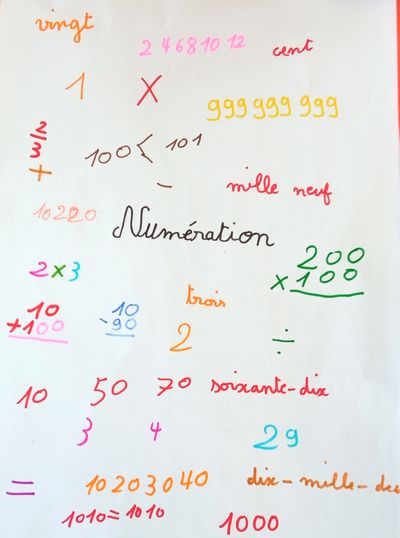 vingt
2 4 6 8 10 12
cent
1 X
999 999 999
2/3
100 < 101
+ -
mille neuf
10220
Numération
200
× 100
2 x 3
10
+100
10
-90
trois
2
÷
10 50 70 soixante-dix
3 4
29
= 10 20 30 40
dix-mille-deu
1010 = 1010
1000